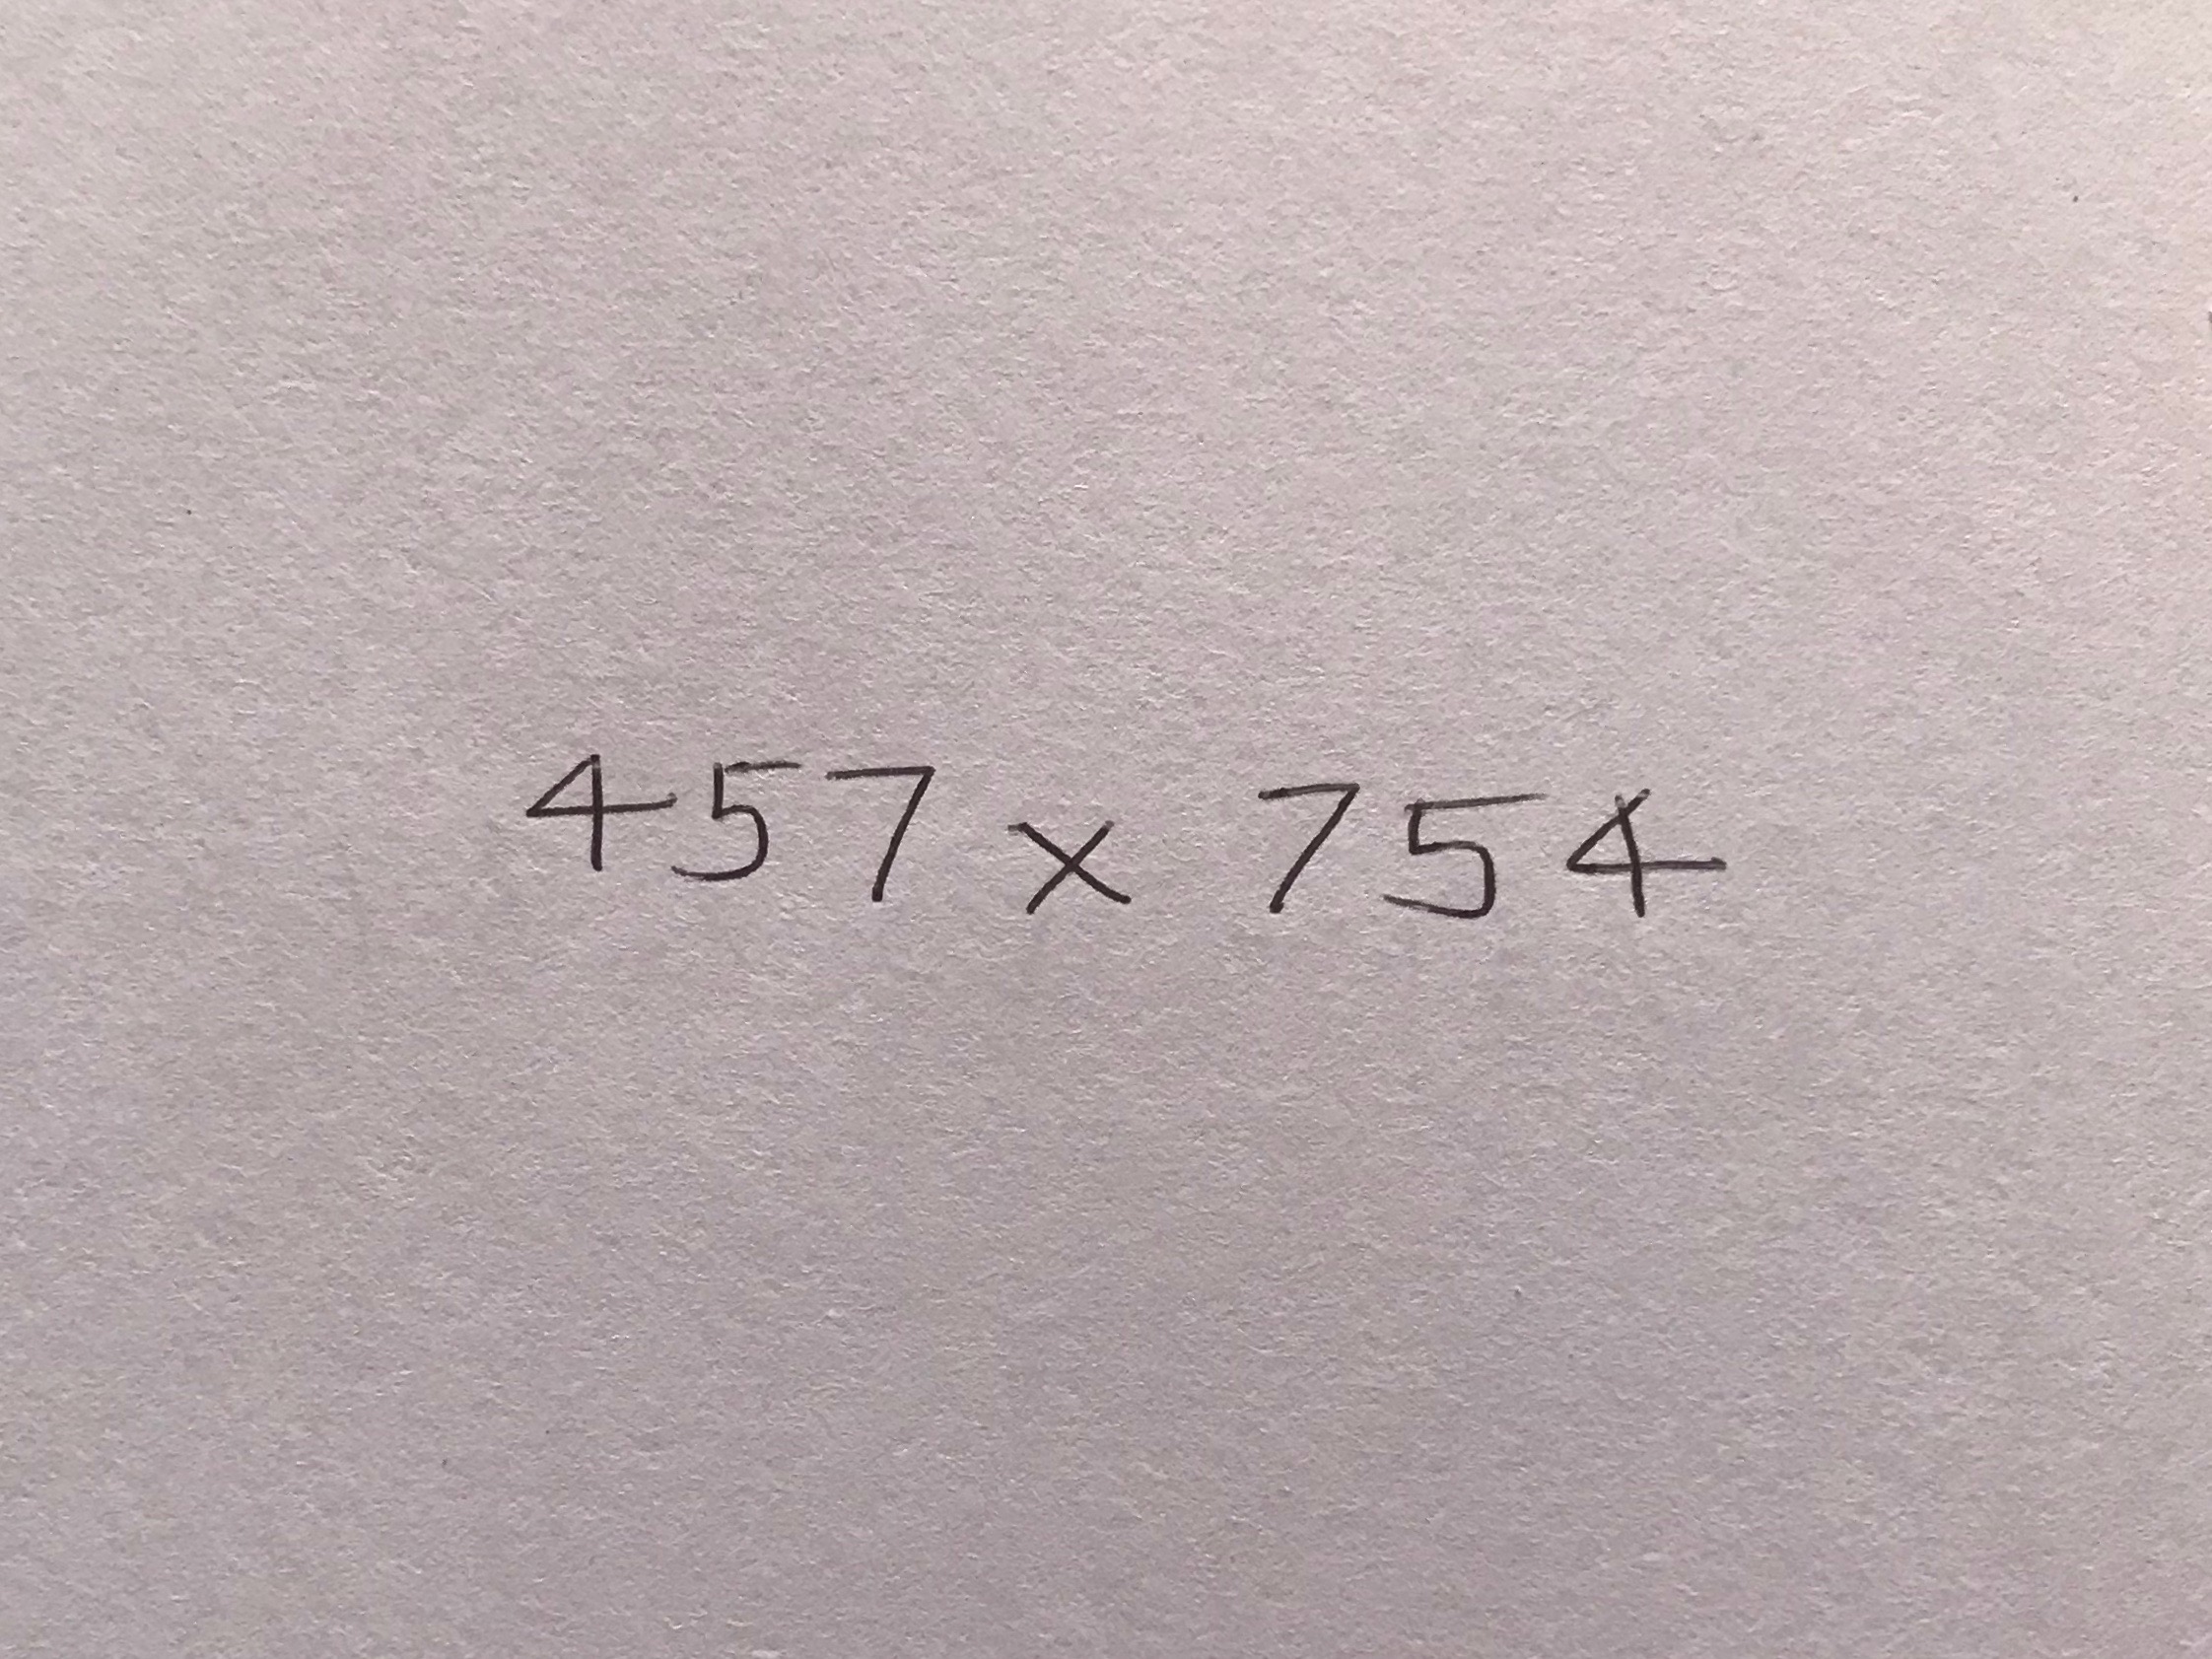 457 x 754